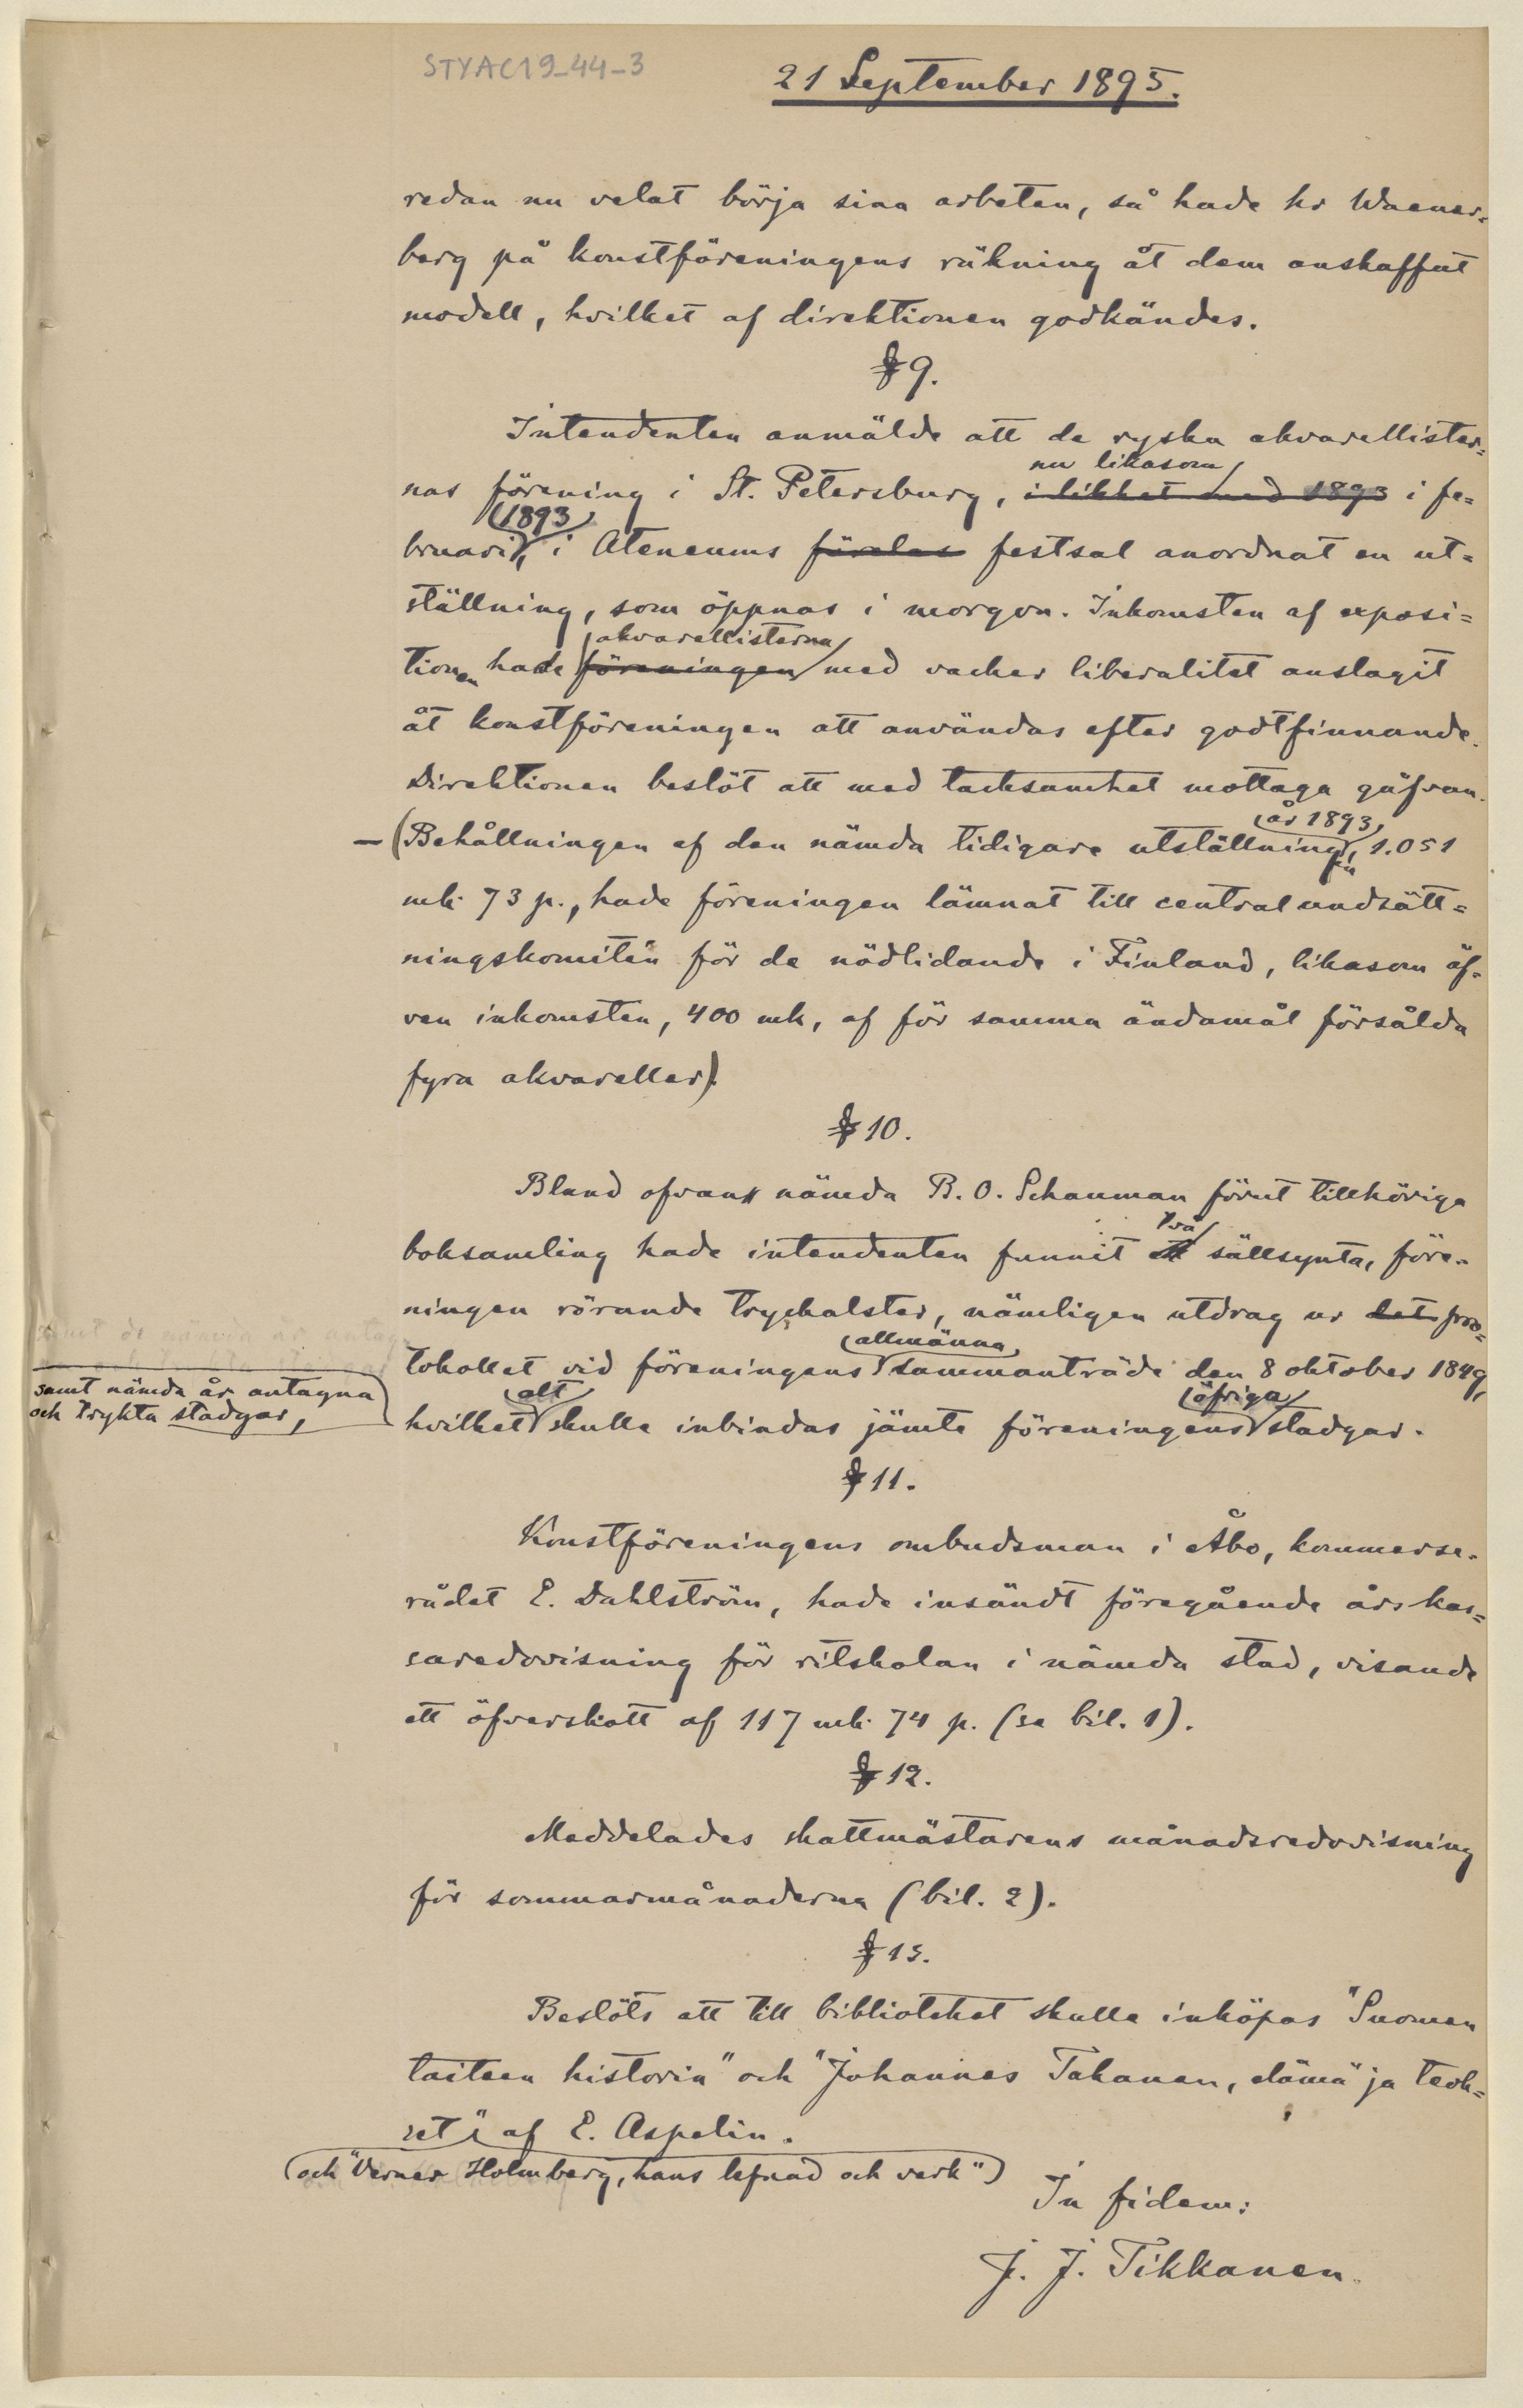 STYAC19-44-3
21 September 1895.
redan nu velat börja sina arbeten, så hade hr Waener=
berg på konstföreningens räkning åt dem anskaffat
modell, hvilket af direktionen godkändes.
§ 9.
Intendenten anmälde att de ryska akvarellister=
nu likasom
nas förening i St. Petersburg, i likhet med 1893 i fe=
1893
bruari, i Ateneums festsal anordnat en ut=
ställning, som öppnas i morgon. Inkomsten af exposi=
akvarellisterna
tionen hade föreningen med vacker liberalitet anslagit
åt konstföreningen att användas efter godtfinnande.
Direktionen beslöt att med tacksamhet mottaga gåfvan.
år 1893
— (Behållningen af den nämda tidigare utställningen, 1.051
mk 73 p., hade föreningen lämnat till centralundsätt=
ningskomitén för de nödlidande i Finland, likasom äf=
ven inkomsten, 400 mk, af för samma ändamål försålda
fyra akvareller).
§ 10.
Bland ofvan nämda B. O. Schauman förut tillhöriga
två
boksamling hade intendenten funnit sällsynta, före=
ningen rörande tryckalster, nämligen utdrag ur det pro=
allmänna
tokollet vid föreningens sammanträde den 8 oktober 1849,
samt nämda år antagna
och trykta stadgar,
alt öfriga
hvilket skulle inbindas jämte föreningens stadgar.
§ 11.
Konstföreningens ombudsman i Åbo, kommerse=
rådet E. Dahlström, hade insändt föregående års kas=
saredovisning för ritskolan i nämda stad, visande
ett öfverskott af 117 mk 74 p. (se bil. 1).
§ 12.
Meddelades skattmästarens månadsredovisning
för sommarmånaderna (bil. 2).
§ 13.
Beslöts att till biblioteket skulle inköpas "Suomen
taiteen historia" och "Johannes Takanen, elämä ja teok=
set" af E. Aspelin.
(och "Verner Holmberg, hans lefnad och verk")
In fidem:
J. J. Tikkanen.